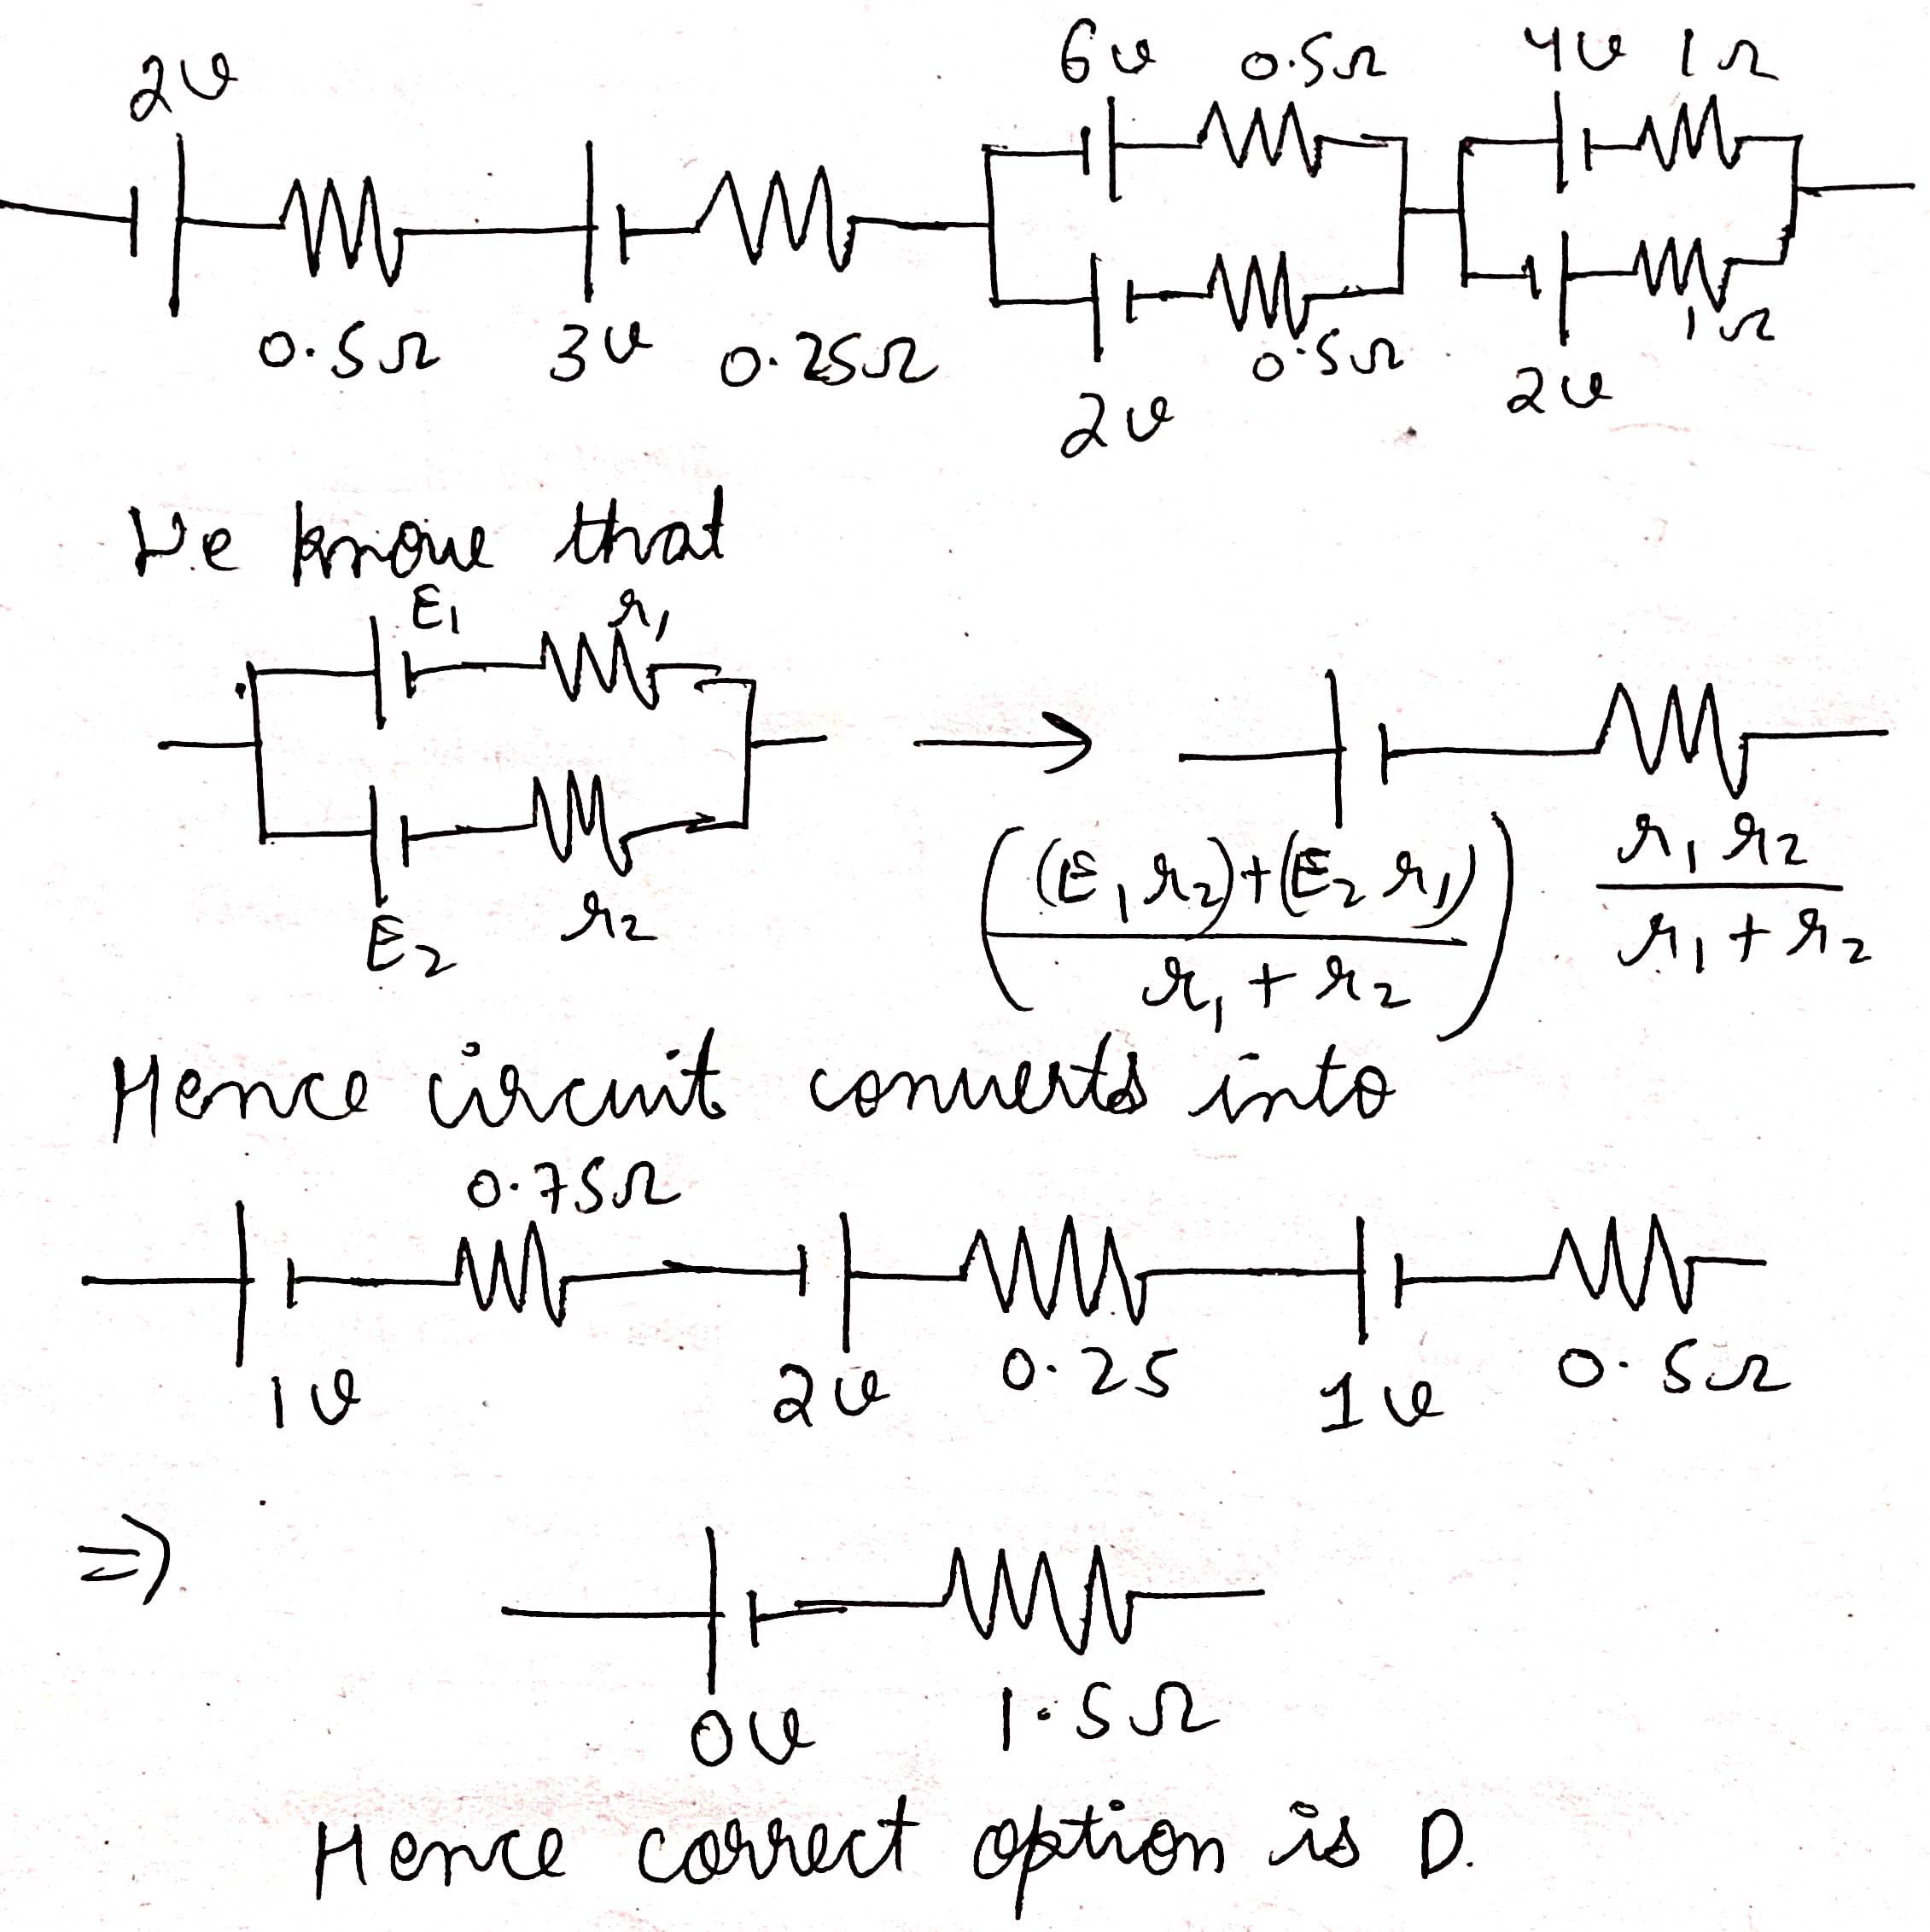 2v
6v 0.5Ω 4v 1Ω
0.5Ω 3v 0.25Ω
2v 0.5Ω 2v 1Ω
We know that
E1 r1
E2 r2
((E1 r2)+(E2 r1) / r1 + r2) r1 r2 / r1 + r2
Hence circuit converts into
0.75Ω
1v 2v 0.25 1v 0.5Ω
⇒
0v 1.5Ω
Hence correct option is D.